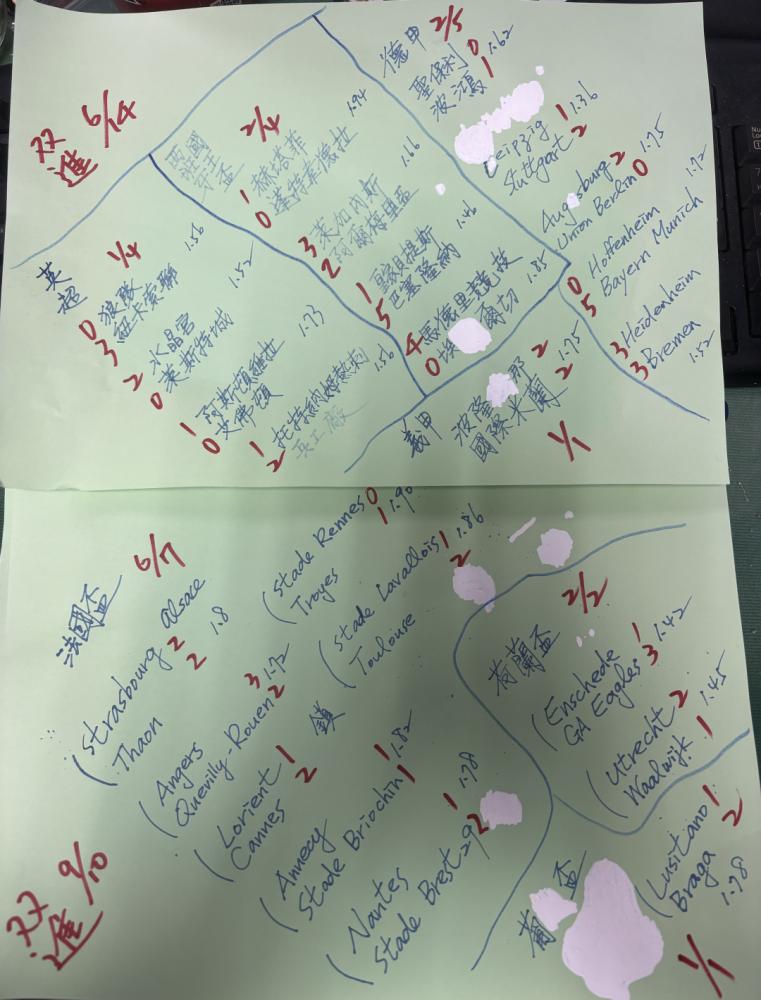 双進 6/14
英超 1/4
0 狼隊 1.56
3 紐卡索聯
2 水晶宮 1.52
0 萊斯特城
1 阿斯頓維拉 1.73
0 艾佛頓
1 托特納姆熱刺 1.56
2 兵工廠
西班牙國王盃 2/4
1 赫塔菲 1.94
0 蓬特韋德拉
3 萊加內斯 1.66
2 阿爾梅里亞
1 皇家貝提斯 1.46
5 巴塞隆納
4 馬德里競技 1.85
0 埃爾切
德甲 2/5
聖保利 0 1.62
波鴻 1
Leipzig 1 1.36
Stuttgart 2
Augsburg 2 1.75
Union Berlin 0
0 Hoffenheim 1.72
5 Bayern Munich
3 Heidenheim
3 Bremen 1.52
義甲 1/1
波隆那 2 1.75
國際米蘭 2
法國盃 6/7
Strasbourg Alsace 2 1.8
Thaon 2
Angers 3 1.72
Quevilly-Rouen 2
Lorient 1 鎖
Cannes 2
Stade Rennes 0 1.90
Troyes 1
Stade Lavallois 1 1.86
Toulouse 2
Annecy 1 1.82
Stade Briochin 1
Nantes 1 1.78
Stade Brest 29 2
双進 9/10
荷蘭盃 2/2
Enschede 1 1.42
GA Eagles 3
Utrecht 2 1.45
Waalwijk 1
葡盃 1/1
Lusitano 1
Braga 2 1.78